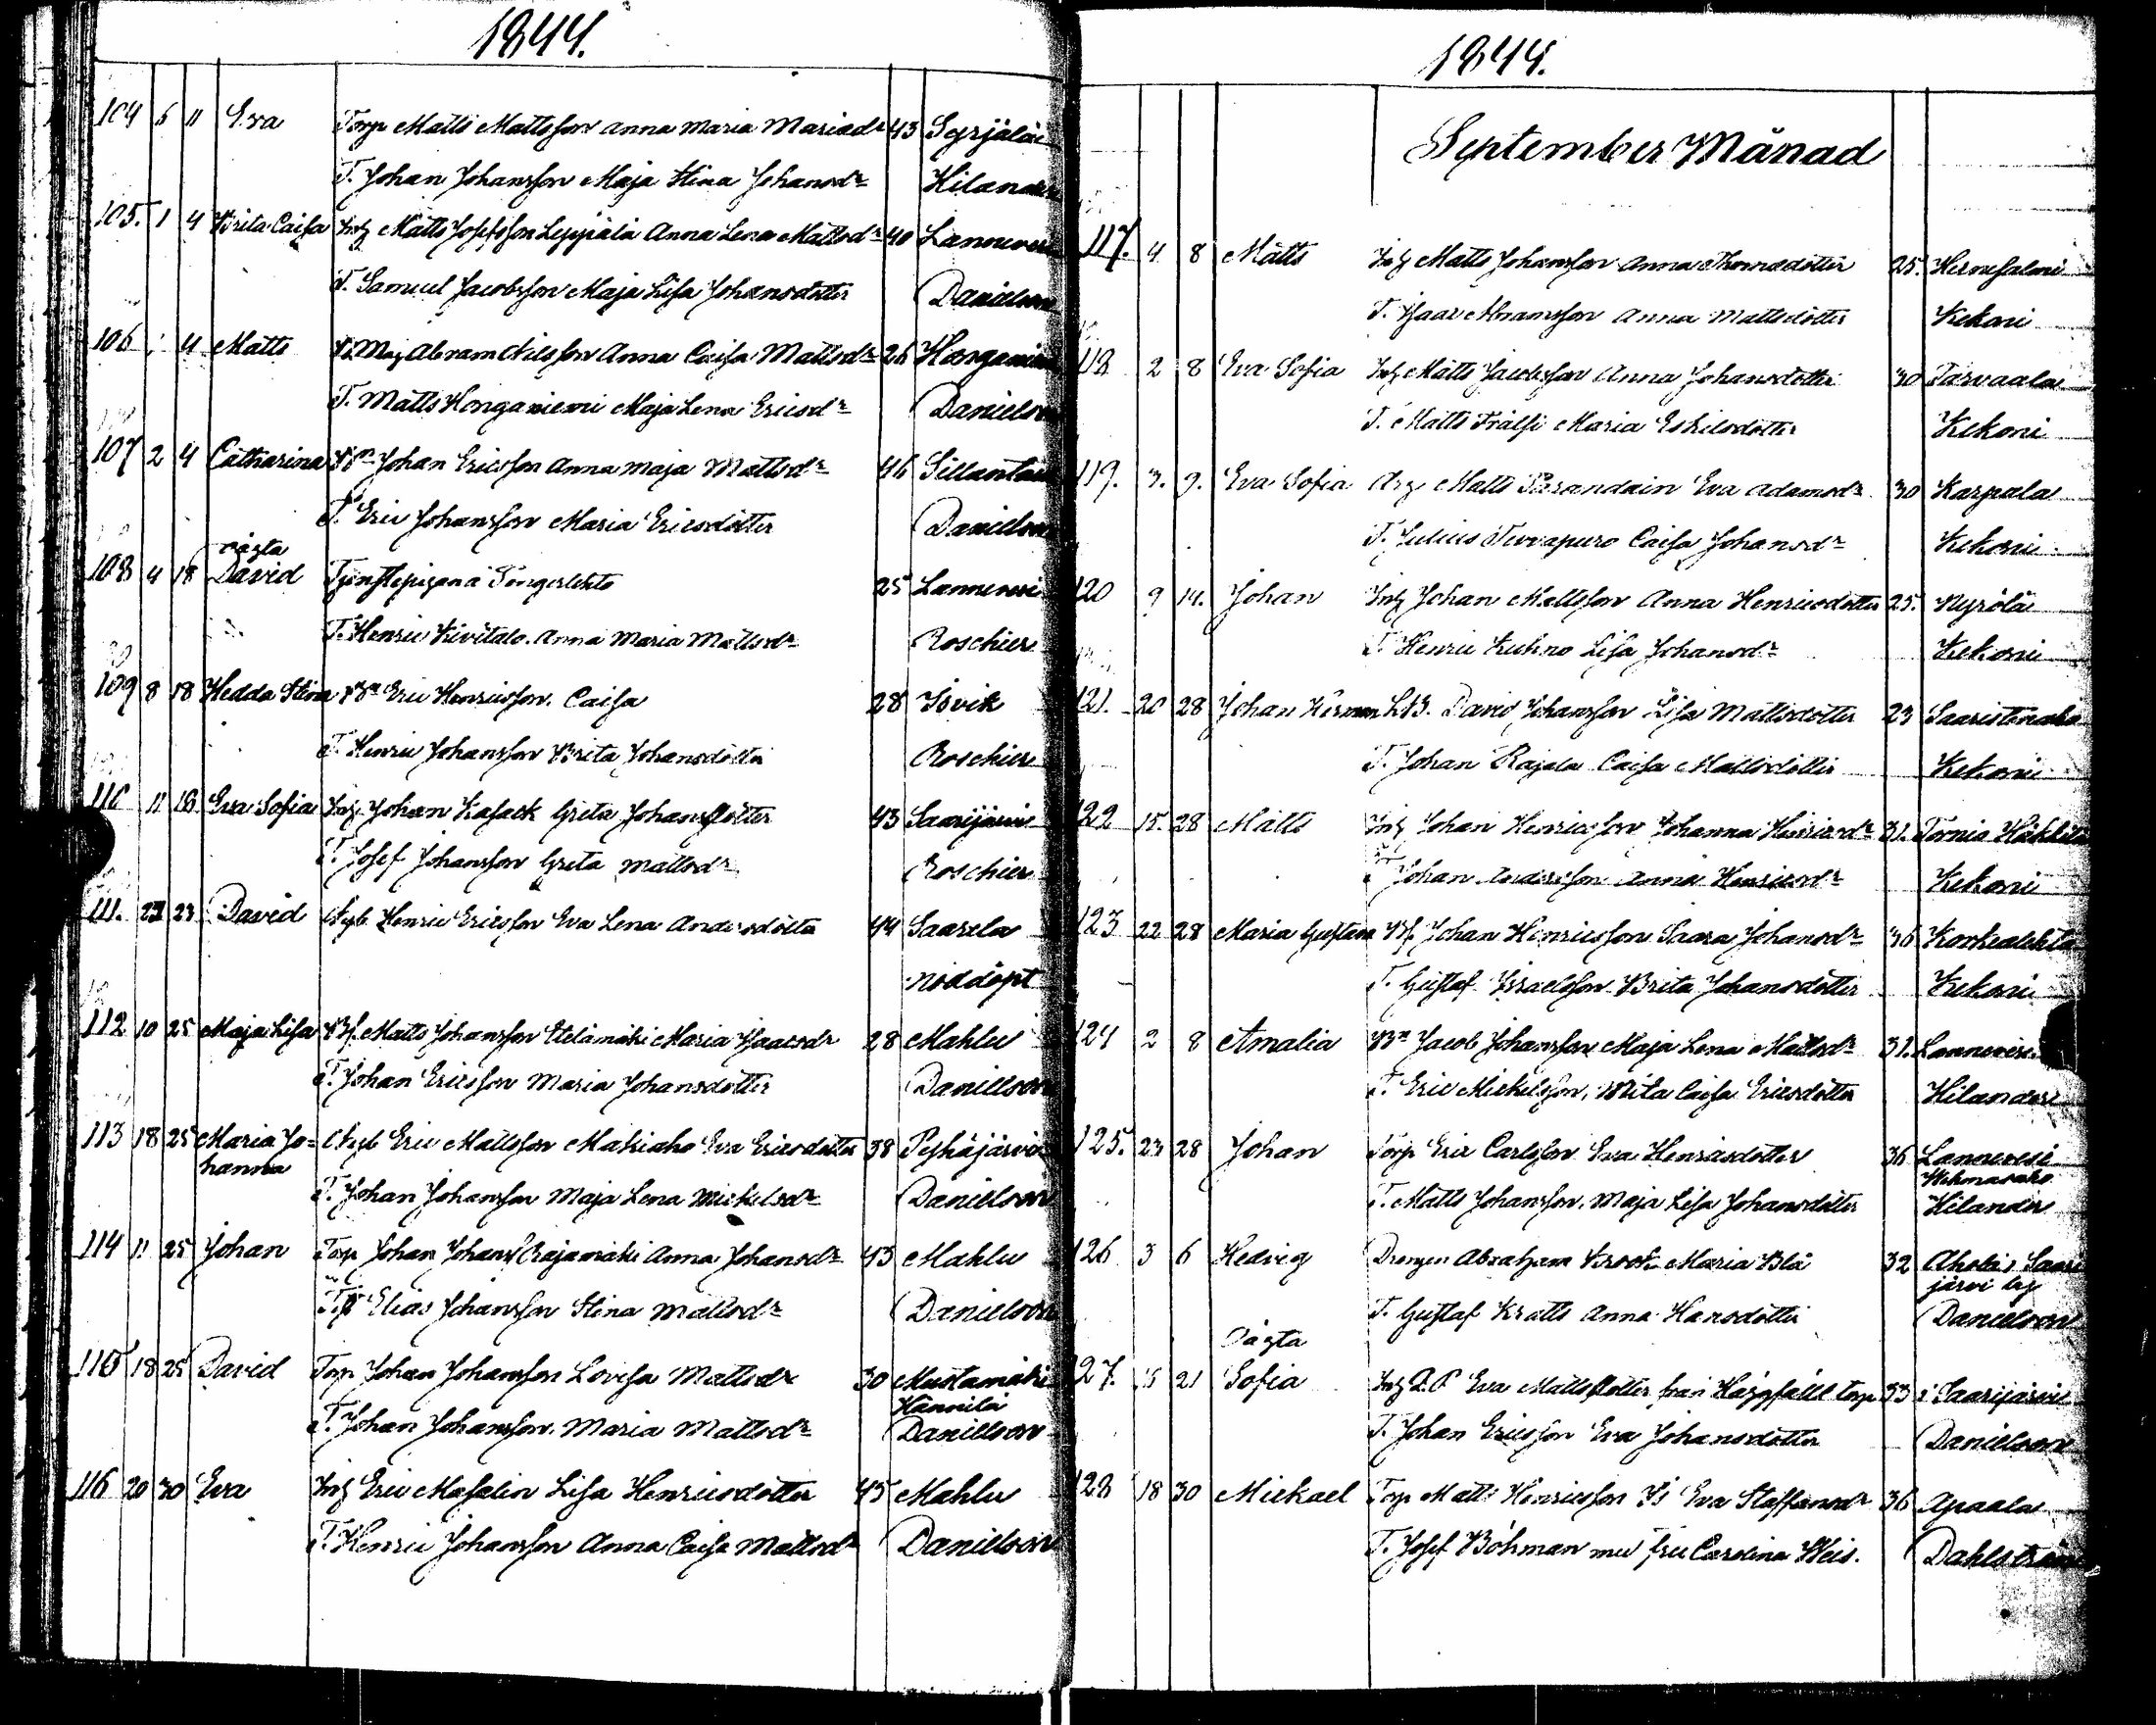 1844.
104 5 11 Eva Torp Matts Mattsson Anna Maria Mariædr 43 Syrjälä
T. Johan Johansson Maja Stina Johansdr Hilander
105. 1 4 Brita Caisa Inh Matts Josefsson Leppälä Anna Lena Mattsdr 40 Lannevesi
T. Samuel Jacobsson Maja Lisa Johansdotter Danielson
106 4 Matts Abram Nilsson Anna Caisa Mattsdr 26 Honganiemi
T. Matts Honganiemi Maja Lena Ericsdr Danielson
107 2 4 Catharina Bn Johan Ericsson Anna Maja Mattsdr 46 Sillantaus
T. Eric Johansson Maria Ericsdotter Danielson
oägta
108 4 18 David Tjenstepigan Tongerlehto 25 Lannevesi
T. Henric Kivitalo. Anna Maria Mattsdr Roschier
109 8 18 Hedda Stina Bn Eric Henricsson. Caisa 28 Isvik
T. Henric Johansson Brita Johansdotter Roschier
110 11 18 Eva Sofia Inh Johan Kasack Greta Johansdotter 43 Saarijärvi
T. Josef Johansson Greta Mattsdr Roschier
111. 23 23 David Nyb Henric Ericsson Eva Lena Andersdotter 44 Saarela
nöddöpt
112 10 25 Maja Lisa Bf. Matts Johansson Etelämäki Maria Isaacsdr 28 Mahlu
T. Johan Ericsson Maria Johansdotter Danielson
113 18 25 Maria Jo=
hanna Nyb Eric Mattsson Makiaho Eva Ericsdotter 38 Pyhäjärvi
T. Johan Johansson Maja Lena Mickelsdr Danielson
114 11 25 Johan Torp Johan Johanss Rajamäki Anna Johansdr 43 Mahlu
T. Elias Johansson Stina Mattsdr Danielson
115 18 25 David Torp Johan Johansson Lovisa Mattsdr 30 Mustamäki
Hännilä
T. Johan Johansson. Maria Mattsdr Danielson
116 20 30 Eva Inh Eric Masalin Lisa Henricsdotter 45 Mahlu
T. Henric Johansson Anna Caisa Mattsdr Danielson
1844.
September Månad
117. 4 8 Matts Inh Matts Johansson Anna Thomasdotter 25. Hernesalmi
T. Isaac Abramsson Anna Mattsdotter Kekoni
118 2 8 Eva Sofia Inh Matts Jacobsson Anna Johansdotter 30 Tarvaala
T. Matts Frälsi Maria Eskilsdotter Kekoni
119. 3. 9. Eva Sofia Matts Parandain Eva Adamsdr 30 Karpala
T. Julius Tervapuro Caisa Johansdr Kekoni
120 9 14. Johan Inh Johan Mattsson Anna Henricsdotter 25. Nyrölä
T. Henric Kuhno Lisa Johansdr Kekoni
121. 20 28 Johan Herman LB. David Johansson Lisa Mattsdotter 23
T. Johan Rajala Caisa Mattsdotter Kekoni
122 15. 28 Matts Inh Johan Henricsson Johanna Henricsdr 31. Tornia
T. Johan Andersson Anna Henricsdr Kekoni
123 22 28 Maria Gustava Bf. Johan Henricsson Saara Johansdr 36 Korkealehto
T. Gustaf Israelsson Brita Johansdotter Kekoni
124 2 8 Amalia Bn Jacob Johansson Maja Lena Mattsdr 31. Lannevesi
T. Eric Mickelsson, Brita Caisa Ericsdotter Hilander
125. 23 28 Johan Torp Eric Carlsson Eva Henricsdotter 36 Lannevesi
T. Matts Johansson, Maja Lisa Johansdotter Hilander
126 3 6 Hedvig Drengen Abraham Krook Maria Blå 32 Ahola i Saari
järvi by
T. Gustaf Kratts Anna Hansdotter Danielson
oägta
127. 15 21 Sofia Inh Eva Mattsdotter från torp 33 i Saarijärvi
T. Johan Ericsson Eva Johansdotter Danielson
128 18 30 Mickael Torp Matts Henricsson Eva Staffansdr 36 Apaala
T. Josef Böhman med fru Carolina Weis. Dahlström